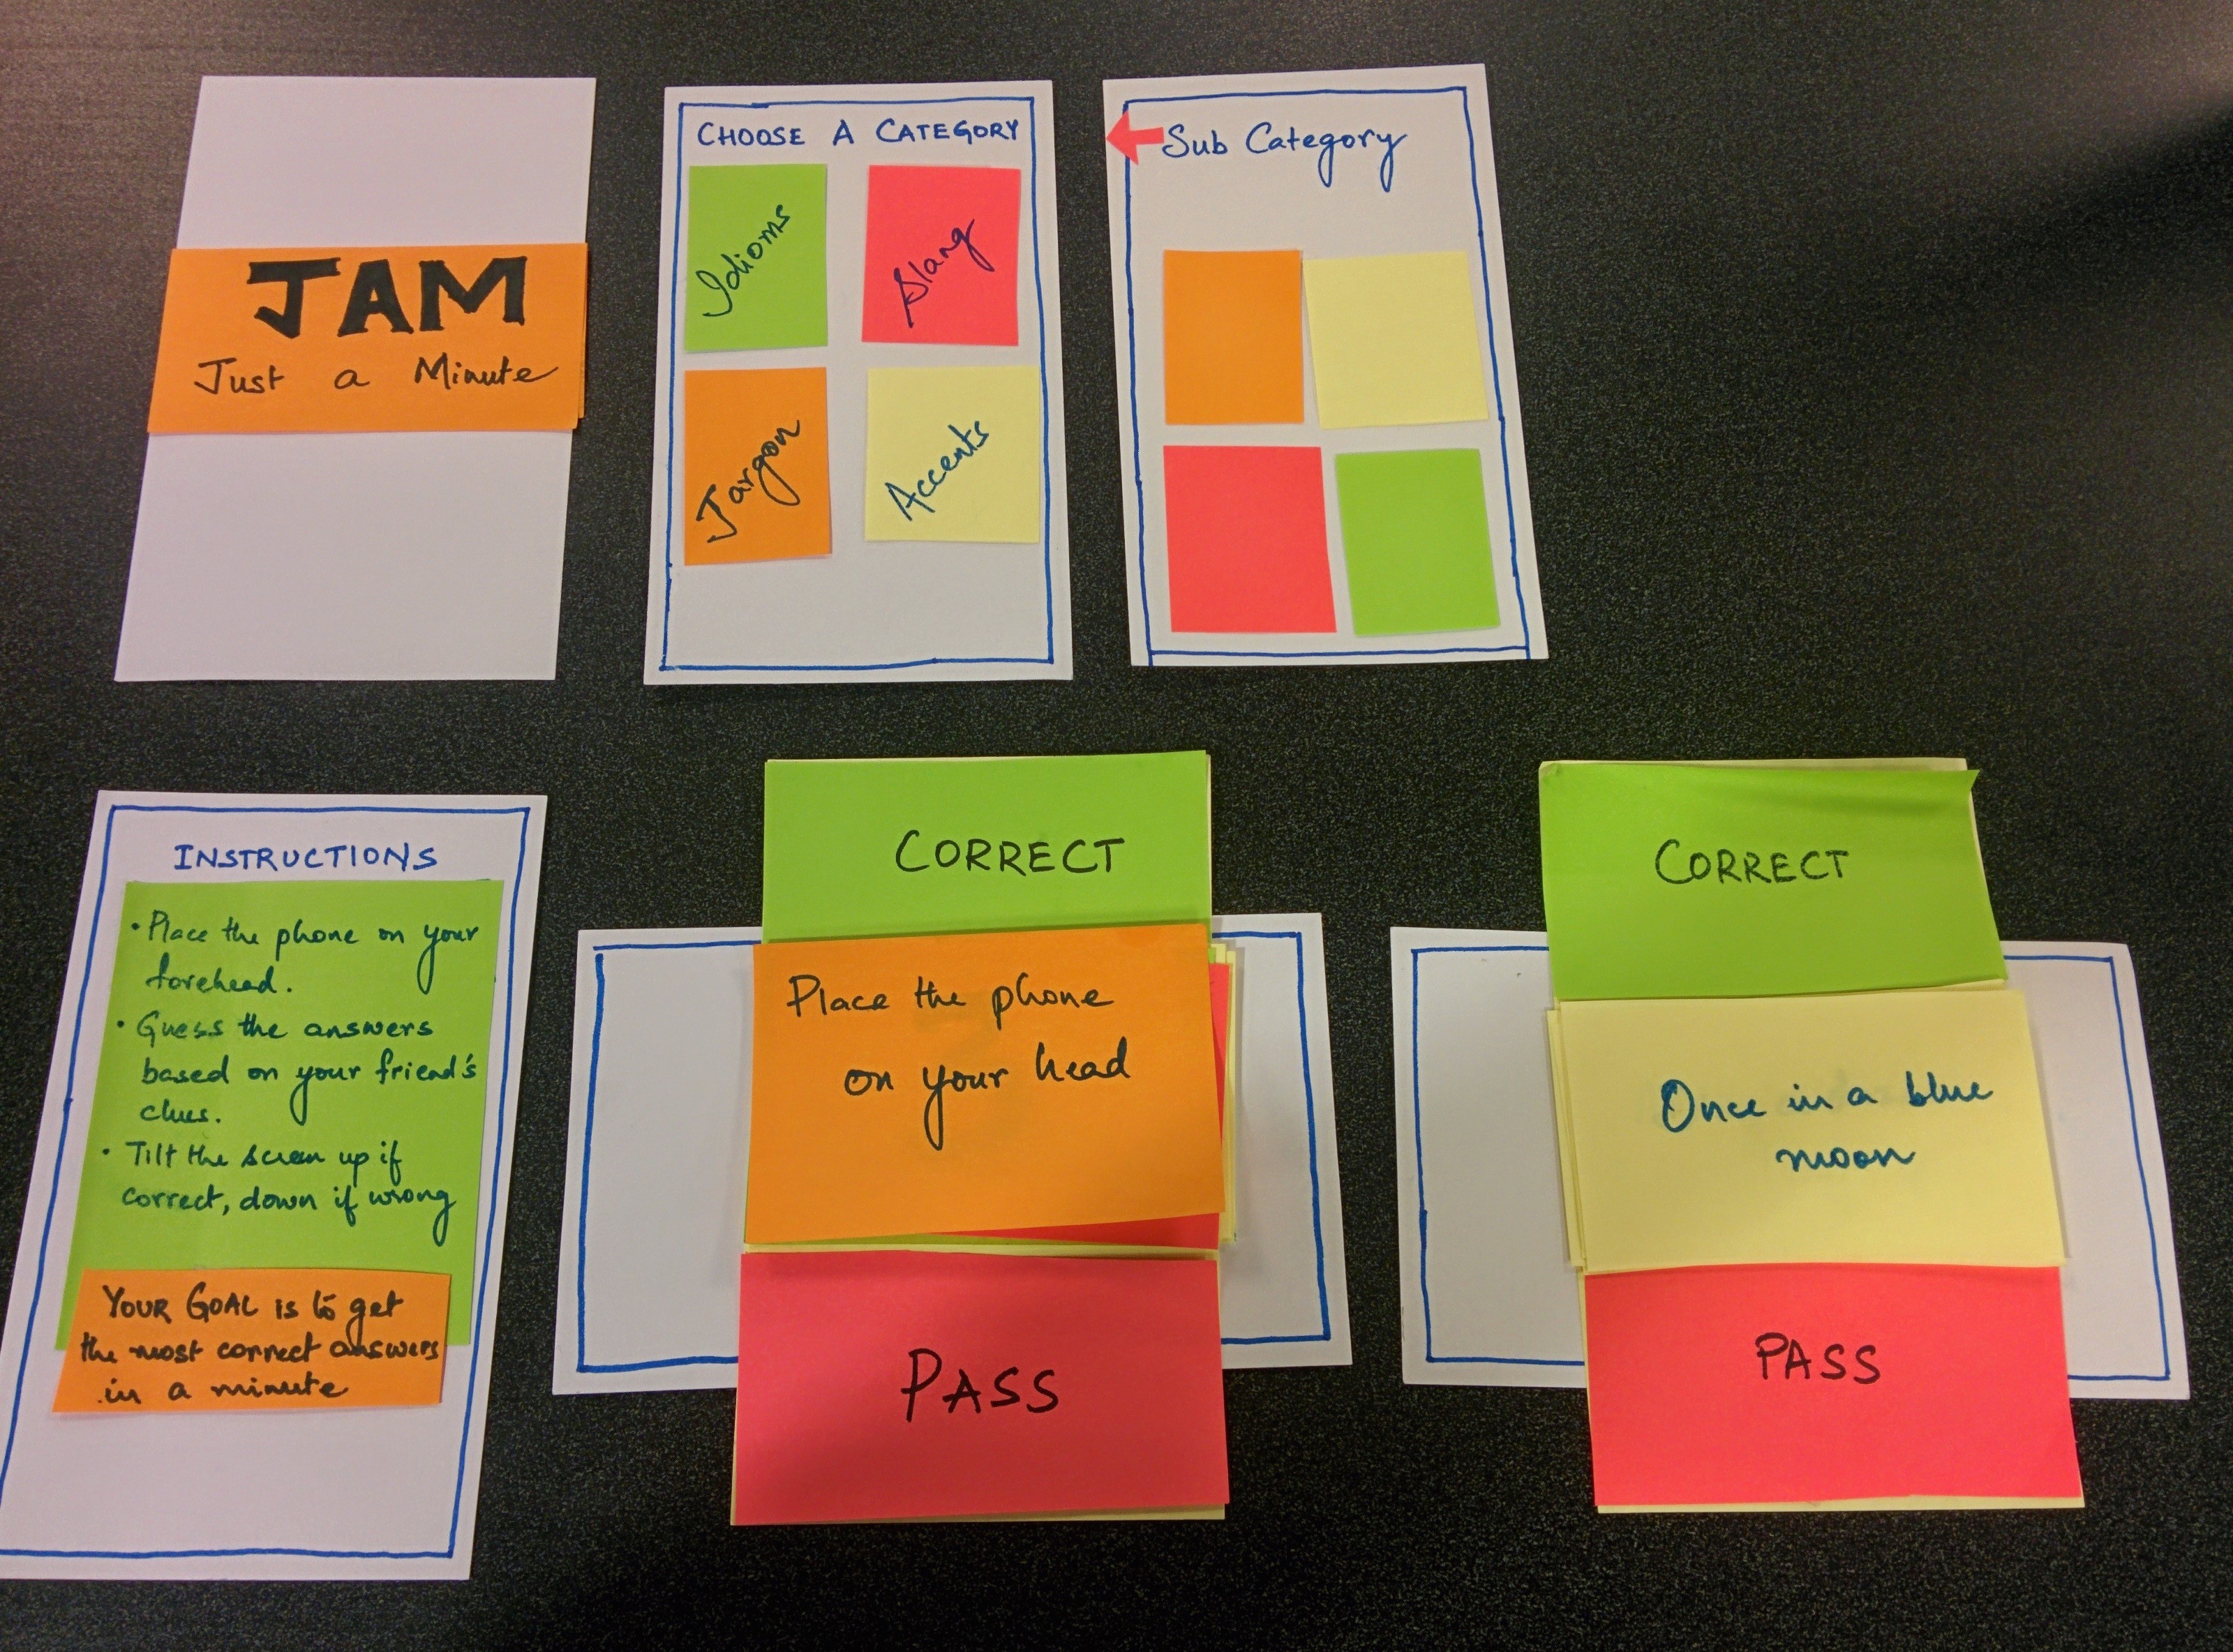 JAM
Just a Minute
CHOOSE A CATEGORY
Idioms
Slang
Jargon
Accents
Sub Category
INSTRUCTIONS
• Place the phone on your
forehead.
• Guess the answers
based on your friend's
clues.
• Tilt the screen up if
correct, down if wrong
YOUR GOAL is to get
the most correct answers
in a minute
CORRECT
Place the phone
on your head
PASS
CORRECT
Once in a blue
moon
PASS